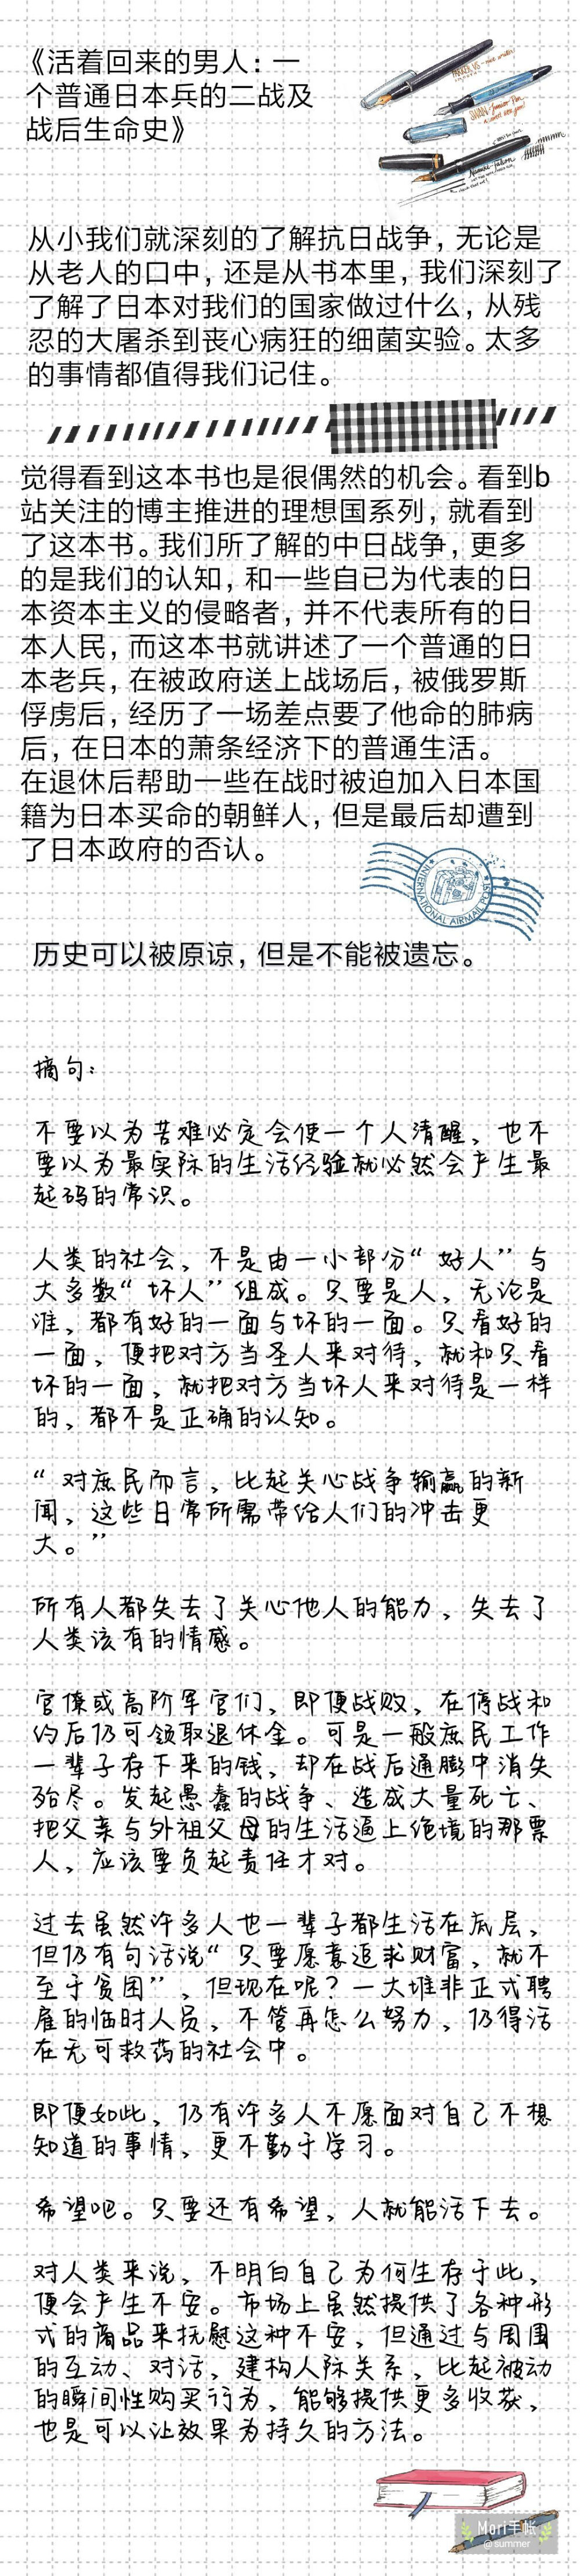 《活着回来的男人：一
个普通日本兵的二战及
战后生命史》
从小我们就深刻的了解抗日战争，无论是
从老人的口中，还是从书本里，我们深刻了
了解了日本对我们的国家做过什么，从残
忍的大屠杀到丧心病狂的细菌实验。太多
的事情都值得我们记住。
觉得看到这本书也是很偶然的机会。看到b
站关注的博主推进的理想国系列，就看到
了这本书。我们所了解的中日战争，更多
的是我们的认知，和一些自已为代表的日
本资本主义的侵略者，并不代表所有的日
本人民，而这本书就讲述了一个普通的日
本老兵，在被政府送上战场后，被俄罗斯
俘虏后，经历了一场差点要了他命的肺病
后，在日本的萧条经济下的普通生活。
在退休后帮助一些在战时被迫加入日本国
籍为日本买命的朝鲜人，但是最后却遭到
了日本政府的否认。
INTERNATIONAL AIRMAIL POST
历史可以被原谅，但是不能被遗忘。
摘句：
不要以为苦难必定会使一个人清醒，也不
要以为最实际的生活经验就必然会产生最
起码的常识。
人类的社会，不是由一小部份“好人”与
大多数“坏人”组成。只要是人，无论是
谁，都有好的一面与坏的一面。只看好的
一面，便把对方当圣人来对待，就和只看
坏的一面，就把对方当坏人来对待是一样
的，都不是正确的认知。
“对庶民而言，比起关心战争输赢的新
闻，这些日常所需带给人们的冲击更
大。”
所有人都失去了关心他人的能力，失去了
人类该有的情感。
官僚或高阶军官们，即便战败，在停战和
约后仍可领取退休金。可是一般庶民工作
一辈子存下来的钱，却在战后通膨中消失
殆尽。发起愚蠢的战争、造成大量死亡、
把父亲与外祖父母的生活逼上绝境的那票
人，应该要负起责任才对。
过去虽然许多人也一辈子都生活在底层，
但仍有句话说“只要愿意追求财富，就不
至于贫困”，但现在呢？一大堆非正式聘
雇的临时人员，不管再怎么努力，仍得活
在无可救药的社会中。
即便如此，仍有许多人不愿面对自己不想
知道的事情，更不勤于学习。
希望吧。只要还有希望，人就能活下去。
对人类来说，不明白自己为何生存于此，
便会产生不安。市场上虽然提供了各种形
式的商品来抚慰这种不安，但通过与周围
的互动、对话，建构人际关系，比起被动
的瞬间性购买行为，能够提供更多收获，
也是可以让效果为持久的方法。
Mori手帐
@summer